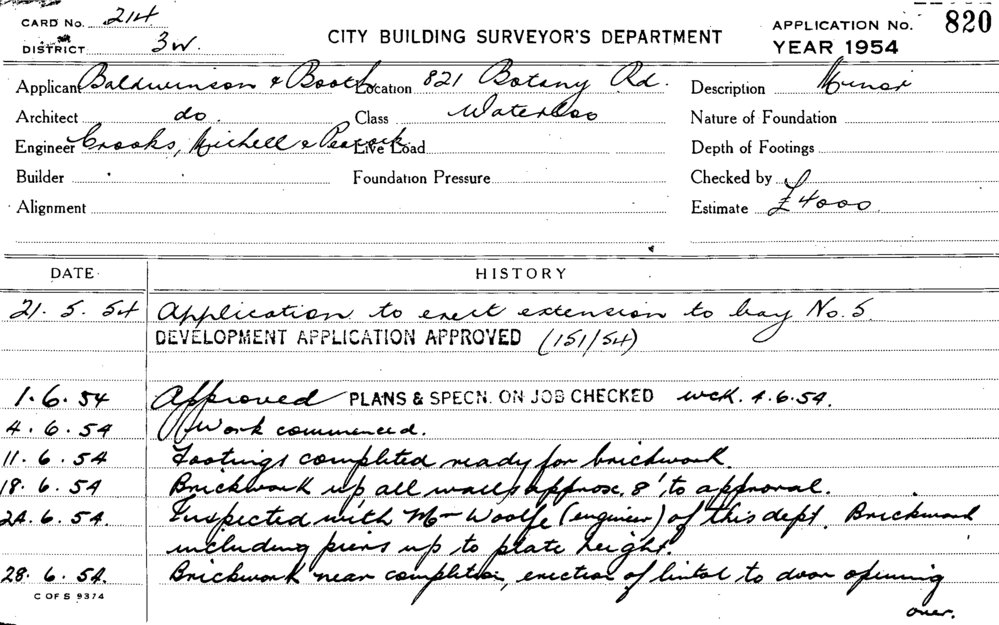 CARD No. 214
DISTRICT 3W.
CITY BUILDING SURVEYOR'S DEPARTMENT
APPLICATION No. 820
YEAR 1954
Applicant Baldwinson & Booth Location 821 Botany Rd. Description Minor
Architect do. Class Waterloo Nature of Foundation
Engineer Crooks, Michell & Peacock Live Load Depth of Footings
Builder Foundation Pressure Checked by
Alignment Estimate £4000
DATE HISTORY
21. 5. 54 Application to erect extension to bay No. 5.
DEVELOPMENT APPLICATION APPROVED (151/54)
1. 6. 54 Approved PLANS & SPECN. ON JOB CHECKED WCK. 4.6.54.
4. 6. 54 Work commenced.
11. 6. 54 Footings completed ready for brickwork.
18. 6. 54 Brickwork up all walls approx. 8', to approval.
24. 6. 54. Inspected with Mr Woolfe (engineer) of this dept. Brickwork
including piers up to plate height.
28. 6. 54. Brickwork near completion, erection of lintol to door opening
C OF S 9374
over.